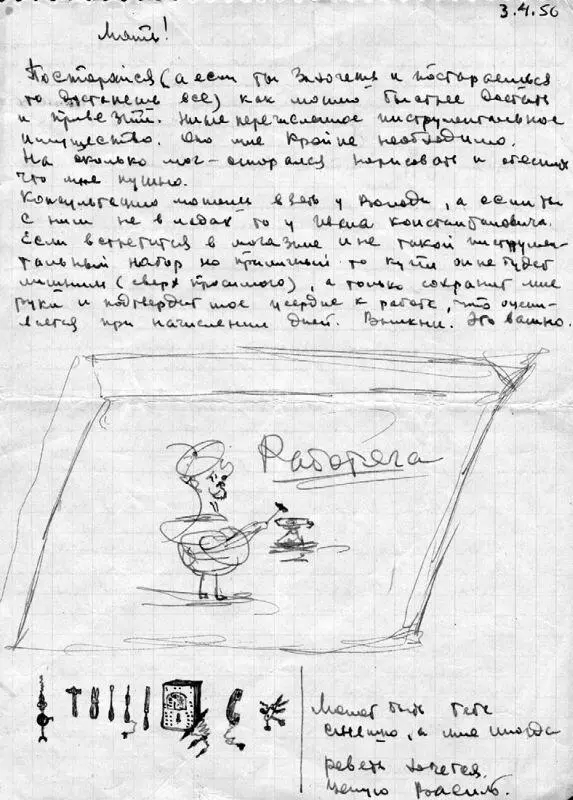 3.4.56
Мать!
Постарайся (а если ты захочешь и постараешься
то достанешь все) как можно быстрее достать
и привезти. Ниже перечисленное инструментальное
имущество. Оно мне крайне необходимо.
На сколько мог – старался нарисовать и
что мне нужно.
Консультацию можешь взять у Володи, а если ты
с ним не в ладах то у Ивана Константиновича.
Если встретится в магазине и не такой инструмен-
тальный набор но приличный то купи он не будет
лишним (сверх просимого), а только сохранит мне
руки и подтвердит мое усердие к работе, что оцени-
вается при начислении дней. Вникни. Это важно.
Работяга
Может быть тебе
смешно, а мне иногда
реветь хочется.
Целую Василь.